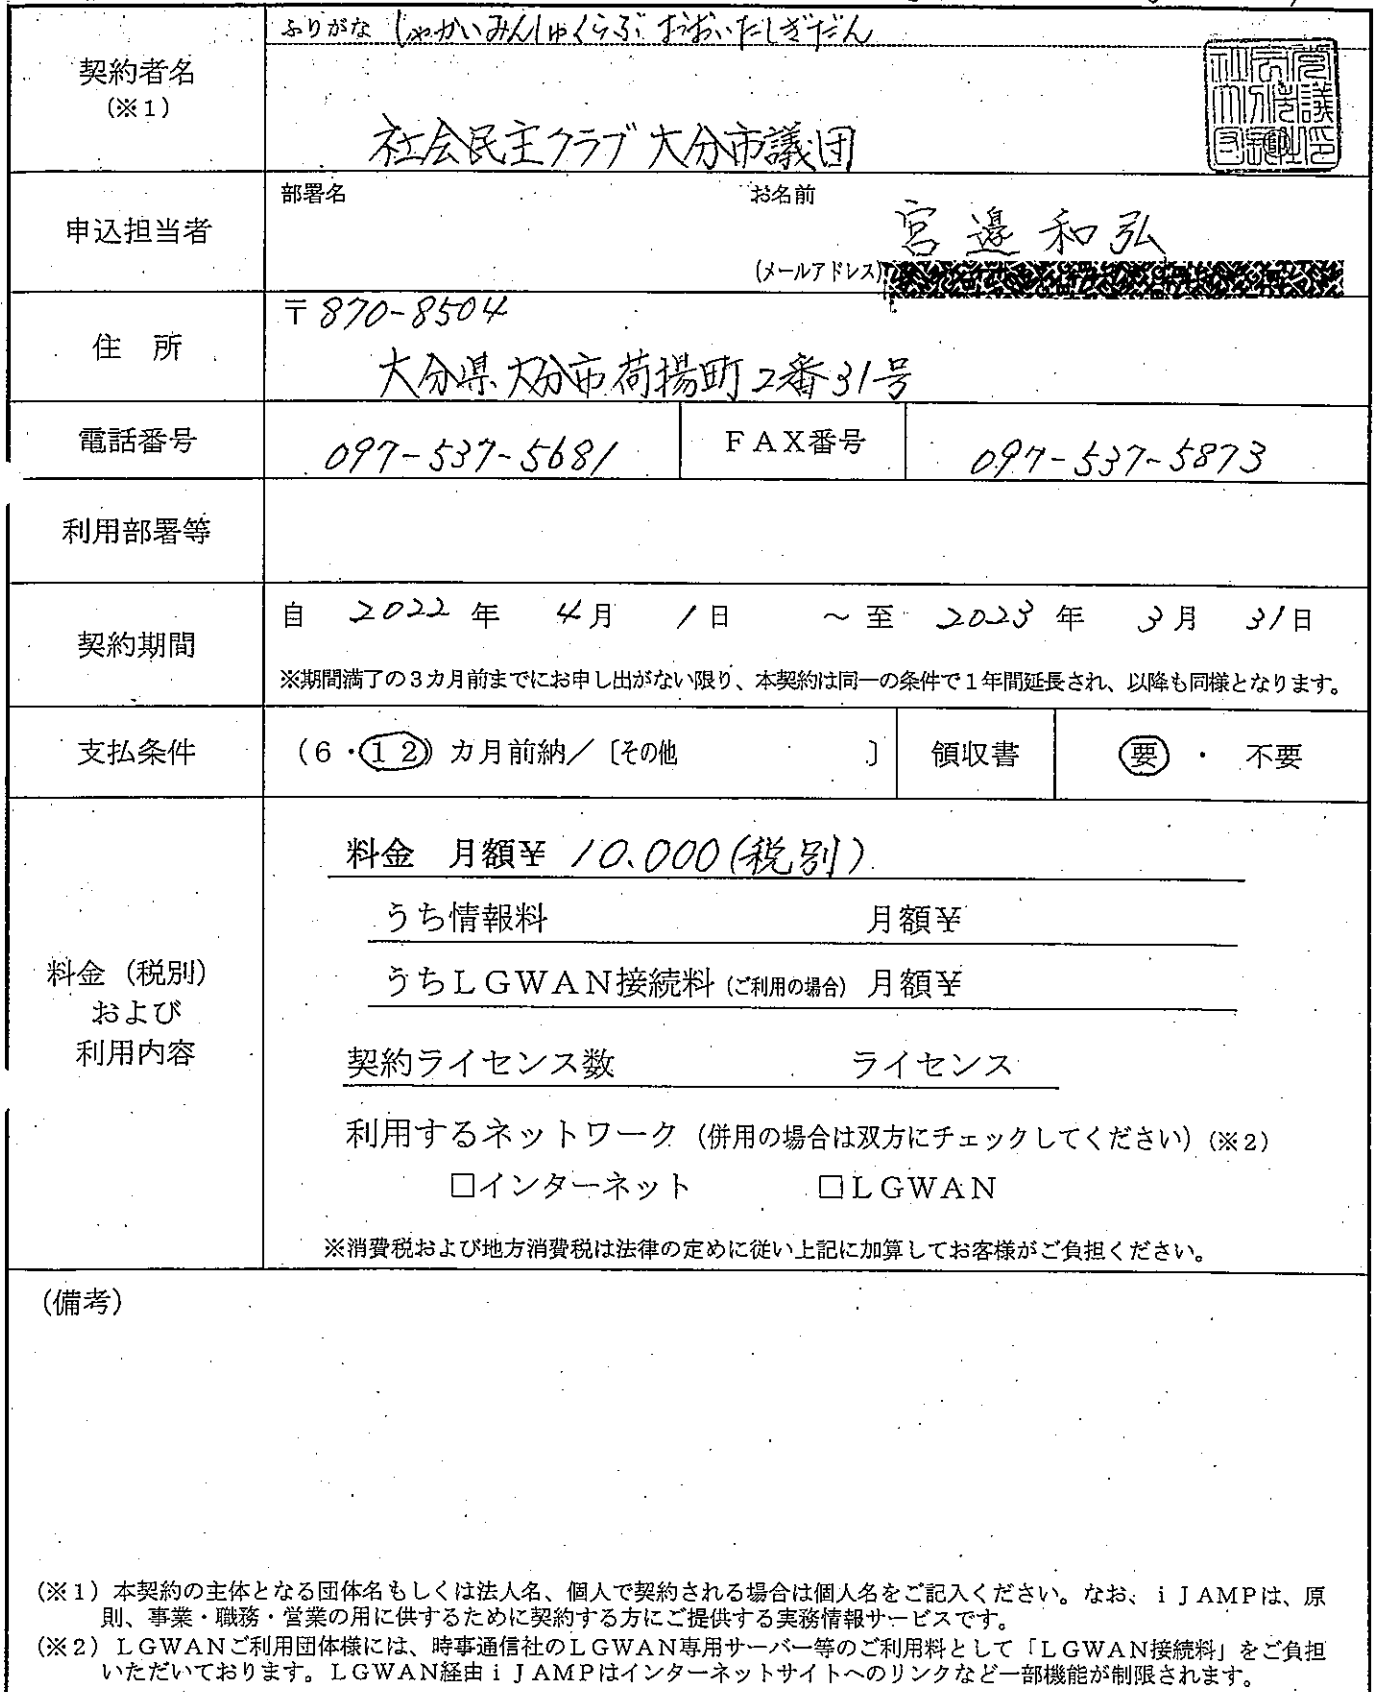 ふりがな しゃかいみんしゅくらぶ おおいたしぎだん
契約者名
(※1)
社会民主クラブ 大分市議団
申込担当者
部署名
お名前
宮邉和弘
(メールアドレス)
住 所
〒870-8504
大分県大分市荷揚町2番31号
電話番号 097-537-5681 FAX番号 097-537-5873
利用部署等
契約期間
自 2022年 4月 1日 ～至 2023年 3月 31日
※期間満了の3カ月前までにお申し出がない限り、本契約は同一の条件で1年間延長され、以降も同様となります。
支払条件 (6・12) カ月前納／〔その他 〕 領収書 要 ・ 不要
料金（税別）
および
利用内容
料金 月額¥ 10.000(税別)
うち情報料 月額¥
うちLGWAN接続料 (ご利用の場合) 月額¥
契約ライセンス数 ライセンス
利用するネットワーク（併用の場合は双方にチェックしてください）(※2)
□インターネット □LGWAN
※消費税および地方消費税は法律の定めに従い上記に加算してお客様がご負担ください。
(備考)
(※1) 本契約の主体となる団体名もしくは法人名、個人で契約される場合は個人名をご記入ください。なお、iJAMPは、原
則、事業・職務・営業の用に供するために契約する方にご提供する実務情報サービスです。
(※2) LGWANご利用団体様には、時事通信社のLGWAN専用サーバー等のご利用料として「LGWAN接続料」をご負担
いただいております。LGWAN経由iJAMPはインターネットサイトへのリンクなど一部機能が制限されます。